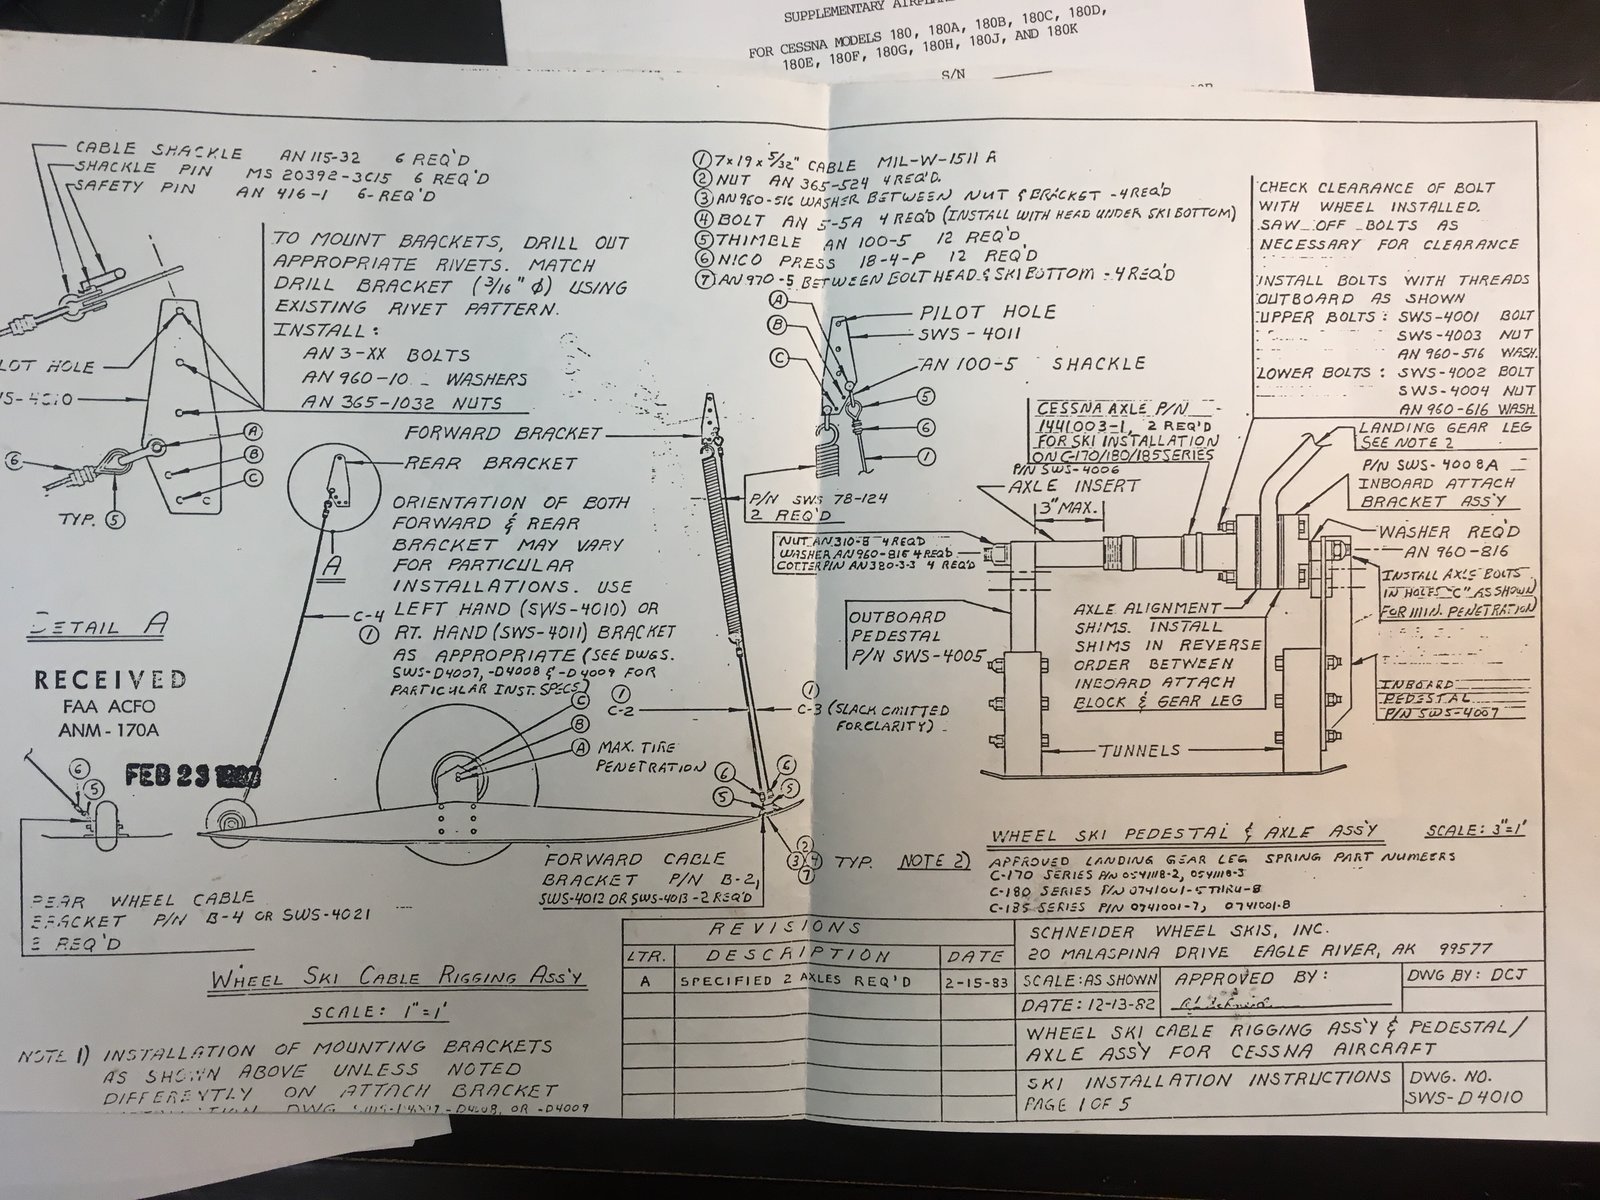 SUPPLEMENTARY
FOR CESSNA MODELS 180, 180A, 180B, 180C, 180D,
180E, 180F, 180G, 180H, 180J, AND 180K
S/N
CABLE SHACKLE AN 115-32 6 REQ'D
SHACKLE PIN MS 20392-3C15 6 REQ'D
SAFETY PIN AN 416-1 6-REQ'D
TO MOUNT BRACKETS, DRILL OUT
APPROPRIATE RIVETS. MATCH
DRILL BRACKET (3/16" Φ) USING
EXISTING RIVET PATTERN.
INSTALL:
AN 3-XX BOLTS
AN 960-10 WASHERS
AN 365-1032 NUTS
LOT HOLE
A
B
C
C
6
TYP. 5
DETAIL A
RECEIVED
FAA ACFO
ANM-170A
FEB 23
6
5
REAR WHEEL CABLE
BRACKET P/N B-4 OR SWS-4021
REQ'D
FORWARD BRACKET
REAR BRACKET
A
C-4
1
ORIENTATION OF BOTH
FORWARD & REAR
BRACKET MAY VARY
FOR PARTICULAR
INSTALLATIONS. USE
LEFT HAND (SWS-4010) OR
RT. HAND (SWS-4011) BRACKET
AS APPROPRIATE (SEE DWGS.
SWS-D4007, -D4008 & -D4009 FOR
PARTICULAR INST. SPECS)
1
C-2
1
C-3 (SLACK OMITTED
FOR CLARITY)
C
B
A MAX. TIRE
PENETRATION
6
5
6
5
FORWARD CABLE
BRACKET P/N B-2,
SWS-4012 OR SWS-4013 -2 REQ'D
2
3 4 TYP.
7
WHEEL SKI CABLE RIGGING ASS'Y
SCALE: 1"=1'
NOTE 1) INSTALLATION OF MOUNTING BRACKETS
AS SHOWN ABOVE UNLESS NOTED
DIFFERENTLY ON ATTACH BRACKET
DWG -D4008, OR -D4009
1 7×19×5/32" CABLE MIL-W-1511 A
2 NUT AN 365-524 4 REQ'D.
3 AN960-516 WASHER BETWEEN NUT & BRACKET -4 REQ'D
4 BOLT AN 5-5A 4 REQ'D (INSTALL WITH HEAD UNDER SKI BOTTOM)
5 THIMBLE AN 100-5 12 REQ'D
6 NICO PRESS 18-4-P 12 REQ'D
7 AN970-5 BETWEEN BOLT HEAD & SKI BOTTOM -4 REQ'D
A
B
C
PILOT HOLE
SWS-4011
AN 100-5 SHACKLE
5
6
1
P/N SWS 78-124
2 REQ'D
CHECK CLEARANCE OF BOLT
WITH WHEEL INSTALLED.
SAW OFF BOLTS AS
NECESSARY FOR CLEARANCE
INSTALL BOLTS WITH THREADS
OUTBOARD AS SHOWN
UPPER BOLTS: SWS-4001 BOLT
SWS-4003 NUT
AN 960-516 WASH.
LOWER BOLTS: SWS-4002 BOLT
SWS-4004 NUT
AN 960-616 WASH.
CESSNA AXLE P/N
1441003-1, 2 REQ'D
FOR SKI INSTALLATION
ON C-170/180/185 SERIES
P/N SWS-4006
AXLE INSERT
3" MAX.
LANDING GEAR LEG
SEE NOTE 2
P/N SWS-4008A
INBOARD ATTACH
BRACKET ASS'Y
NUT AN310-8 4 REQ'D
WASHER AN960-816 4 REQ'D
COTTER PIN AN380-3-3 4 REQ'D
WASHER REQ'D
AN 960-816
INSTALL AXLE BOLTS
IN HOLES "C" AS SHOWN
FOR MIN. PENETRATION
OUTBOARD
PEDESTAL
P/N SWS-4005
AXLE ALIGNMENT
SHIMS. INSTALL
SHIMS IN REVERSE
ORDER BETWEEN
INBOARD ATTACH
BLOCK & GEAR LEG
INBOARD
PEDESTAL
P/N SWS-4007
TUNNELS
WHEEL SKI PEDESTAL & AXLE ASS'Y SCALE: 3"=1'
NOTE 2) APPROVED LANDING GEAR LEG SPRING PART NUMBERS
C-170 SERIES P/N 0541118-2, 0541118-3
C-180 SERIES P/N 0741001-5 THRU -8
C-185 SERIES P/N 0741001-7, 0741001-8
REVISIONS
LTR. DESCRIPTION DATE
A SPECIFIED 2 AXLES REQ'D 2-15-83
SCHNEIDER WHEEL SKIS, INC.
20 MALASPINA DRIVE EAGLE RIVER, AK 99577
SCALE: AS SHOWN APPROVED BY: DWG BY: DCJ
DATE: 12-13-82
WHEEL SKI CABLE RIGGING ASS'Y & PEDESTAL/
AXLE ASS'Y FOR CESSNA AIRCRAFT
SKI INSTALLATION INSTRUCTIONS
PAGE 1 OF 5
DWG. NO.
SWS-D4010